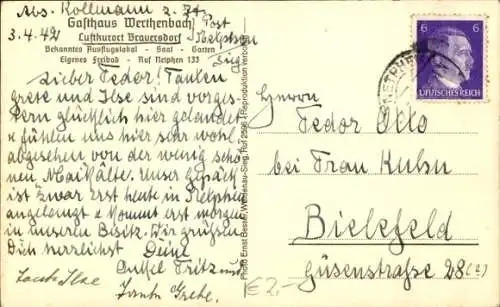 Abs. Kollmann z. Zt.
Gasthaus Werthenbach Post
3.4.42 Luftkurort Brauersdorf Netphen
Bekanntes Ausflugslokal - Saal - Garten Sieg
Eigenes Freibad - Ruf Netphen 133
Lieber Fedor! Tanten
Grete und Ilse sind vorges-
tern glücklich hier gelandet
& fühlen uns hier sehr wohl,
abgesehen von der wenig schö-
nen Maikälte. Unser Gepäck
ist zwar erst heute in Netphen
angelangt & kommt erst morgen
in unseren Besitz. Wir grüssen
Dich herzlichst Deine
Onkel Fritz und
Tante Ilse Tante Grete.
Photo Ernst
Reproduktion verboten
6 6
DEUTSCHES REICH
NETPHEN
Herrn
Fedor Otto
bei Frau Kuhn
Bielefeld
Güsenstraße 28
€ 2,-